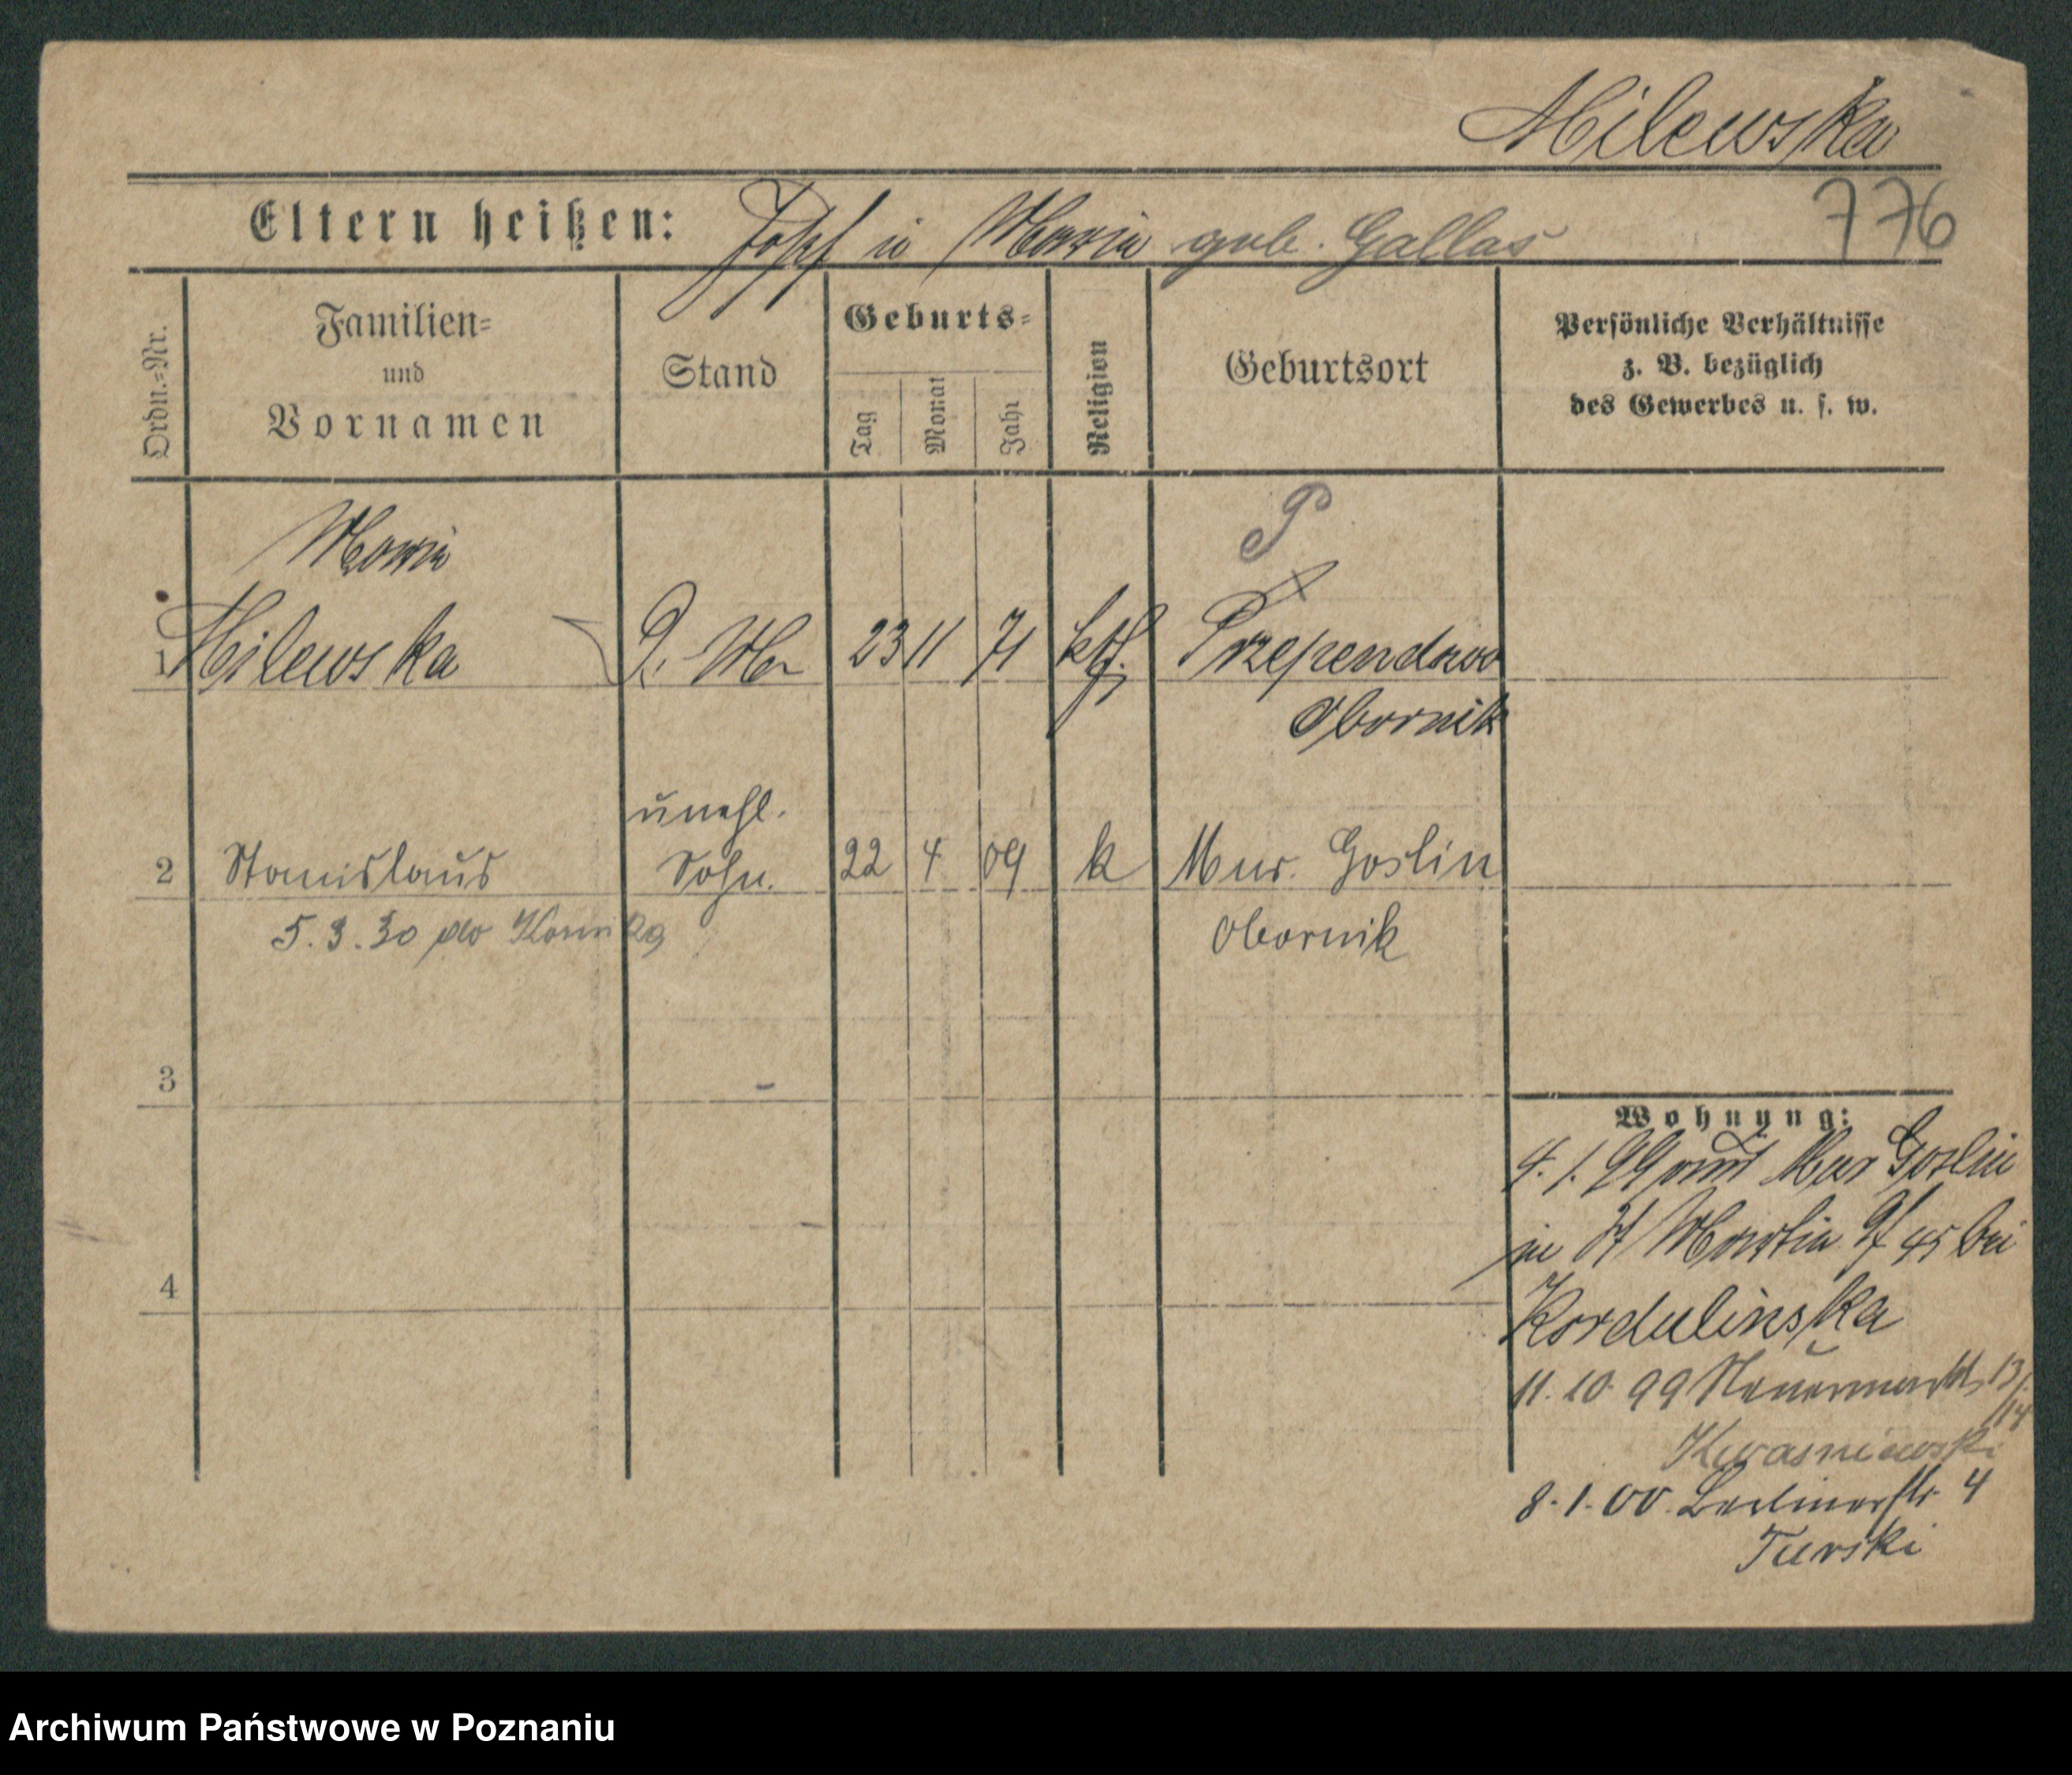 Milewska
776
Eltern heißen: Josef u Maria geb. Gallas
Ordn.=Nr.
Familien=
und
Vornamen
Stand
Geburts=
Tag
Monat
Jahr
Religion
Geburtsort
Persönliche Verhältnisse
z. B. bezüglich
des Gewerbes u. s. w.
P
Maria
1 Milewska 23 11 71 kth. Przependowo
Obornik
unehl.
2 Stanislaus Sohn. 22 4 09 k Mur. Goslin
5.3.30 do Kórnika
Obornik
3
4
Wohnung:
4. 1. 99 aus Mur Goslin
in St Martin 45 bei
Kordulinska
11. 10. 99 Neuermarkt 13/14
Kwasniewski
8. 1. 00. Berlinerstr. 4
Turski
Archiwum Państwowe w Poznaniu